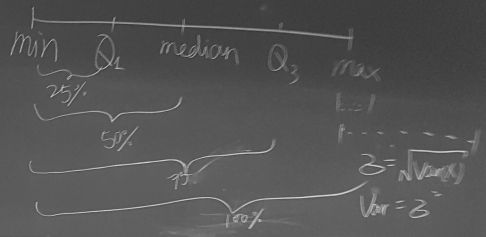 min Q₁ median Q₃ max
25%
50%
75%
100%
Var =